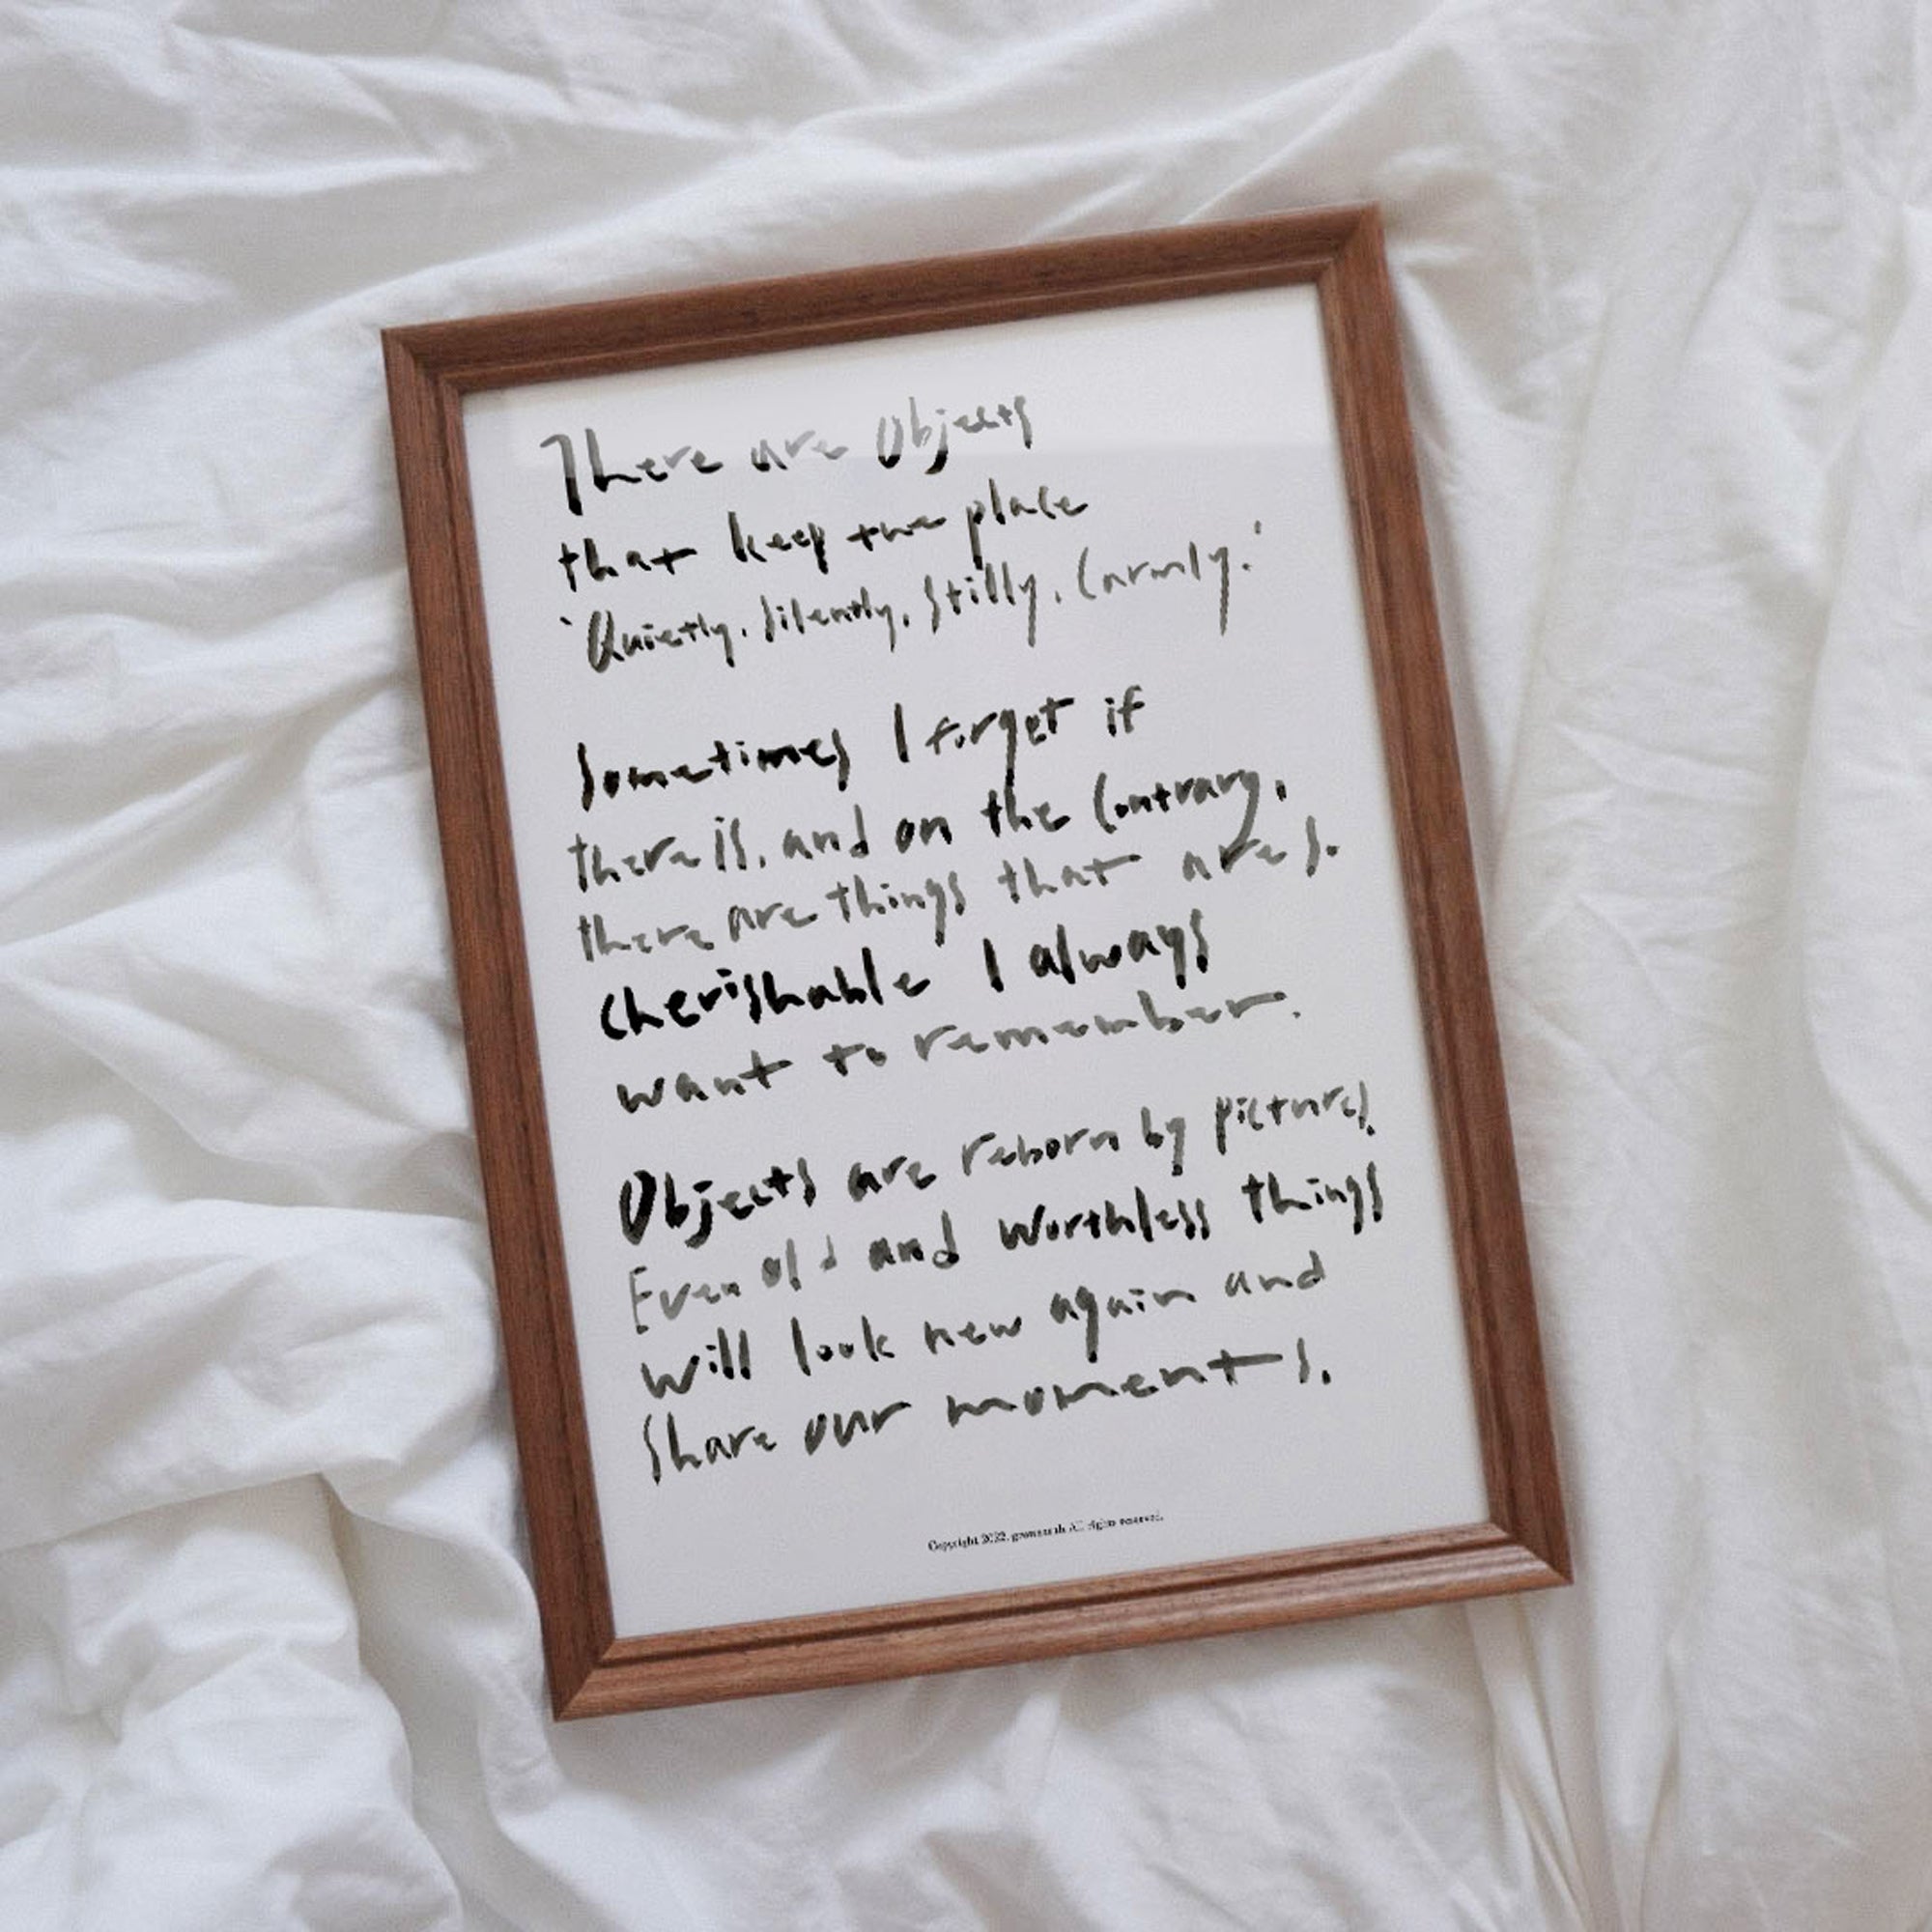 There are Objects
that keep the place
'Quietly, Silently, Stilly, Carmly.'
Sometimes I forget if
there is, and on the Contrary,
there are things that are s.
cherishable I always
want to remember.
Objects are reborn by pictures.
Even old and worthless things
will look new again and
Share our moments.
Copyright 2022. All rights reserved.